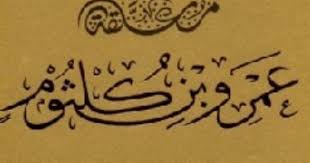 عَمْرو بْن كُلْثُوم